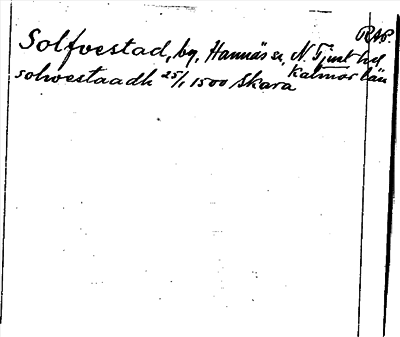 RAP.
Solfvestad, by, Hannäs sn, N. Tjust hd
Kalmar län
solwestaadh 25/1 1500 Skara